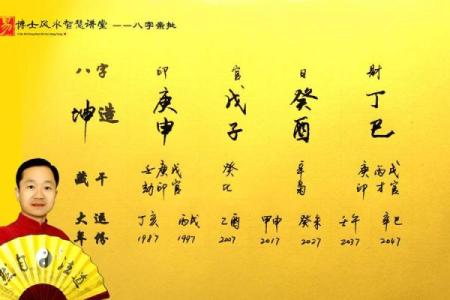 易 博士风水智慧讲堂 ——八字
八字 印 官 日 财
坤造 庚申 戊子 癸酉 丁巳
藏干 壬庚戊 癸 辛 庚丙戊
劫印官 比 枭 印才官
大运 丁亥 丙戌 乙酉 甲申 癸未 壬午 辛巳
年份 1987 1997 2007 2017 2027 2037 2047
道法自然